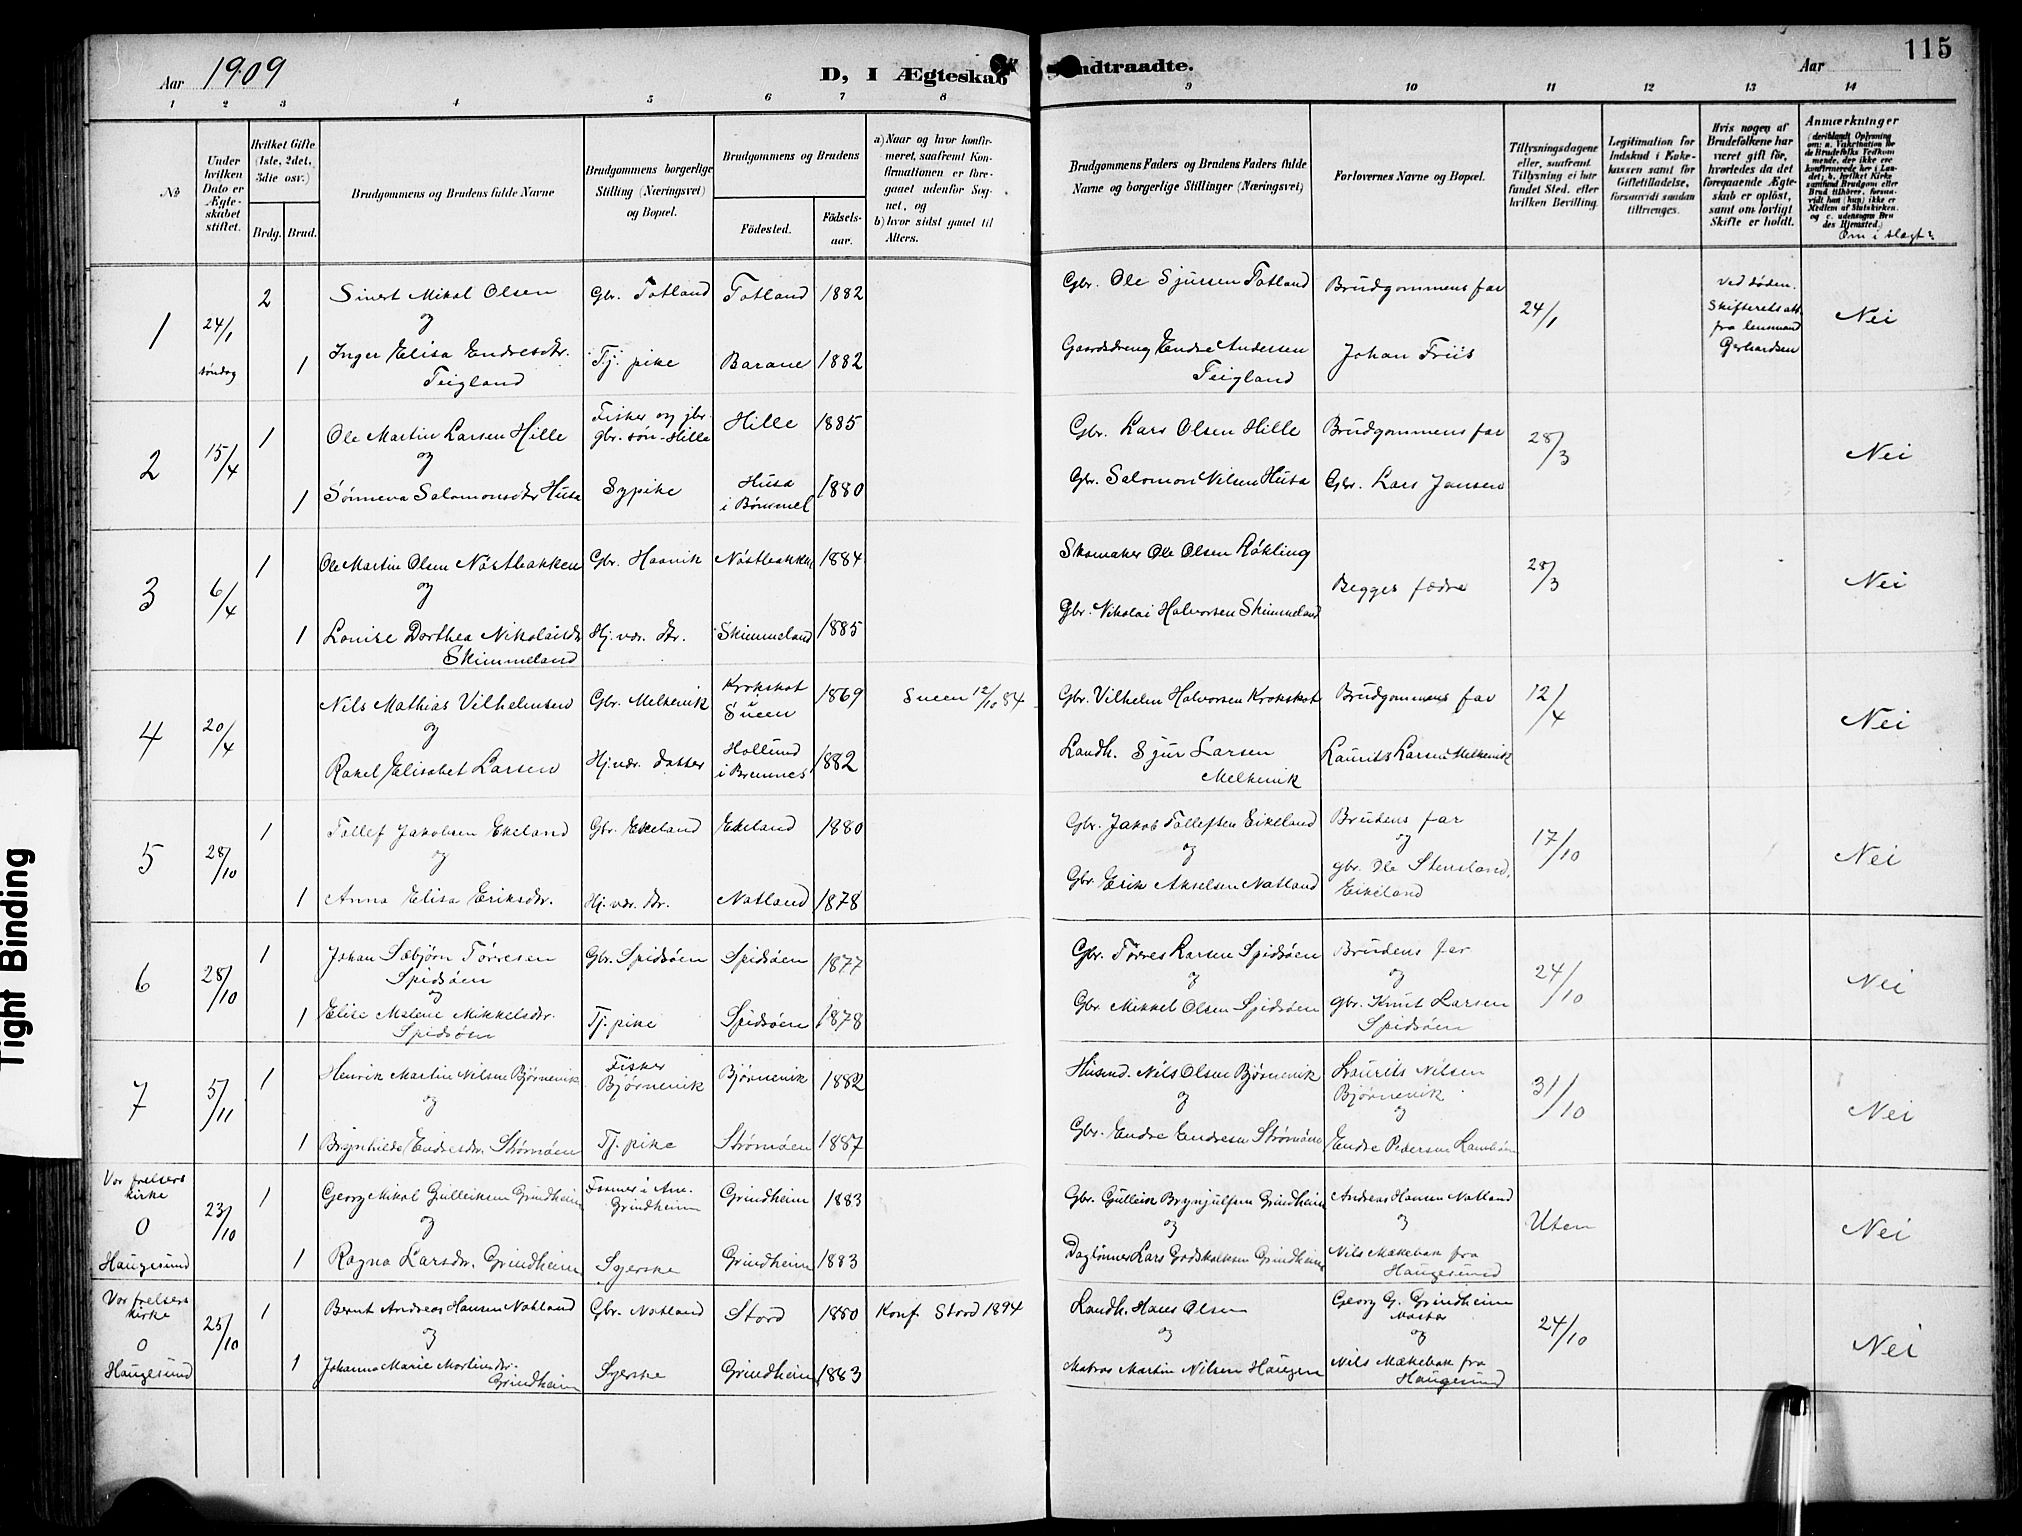 Tight Binding
Aar 1909
D, I Ægteskab
ndtraadte.
Aar
115
1 2 3 4 5 6 7 8 9 10 11 12 13 14
№
Under hvilken Dato er Ægteskabet stiftet.
Hvilket Gifte (1ste, 2det, 3die osv.)
Brdg. Brud.
Brudgommens og Brudens fulde Navne
Brudgommens borgerlige Stilling (Næringsvei) og Bopæl.
Brudgommens og Brudens
Fødested.
Fødselsaar.
a) Naar og hvor konfirmeret, saafremt Konfirmationen er foregaaet udenfor Sognet, og
b) hvor sidst gaaet til Alters.
Brudgommens Faders og Brudens Faders fulde Navne og borgerlige Stillinger (Næringsvei)
Forlovernes Navne og Bopæl.
Tillysningsdagene eller, saafremt Tillysning ei har fundet Sted, efter hvilken Bevilling.
Legitimation for Indskud i Enkekassen samt for Giftetilladelse, forsaavidt saadan tiltrænges.
Hvis nogen af Brudefolkene har været gift før, hvorledes da det foregaaende Ægteskab er opløst, samt om lovligt Skifte er holdt.
Anmærkninger
Om i slægt?
1 24/1 søndag 2 Sivert Mikal Olsen Gbr. Totland Totland 1882 Gbr. Ole Sjursen Totland Brudgommens far 24/1 Ved døden. Skifteretsatt. fra lensmand Gerhardsen Nei
og
1 Inger Elisa Endresdtr. Teigland Tj. pike Barane 1882 Gaardsdreng Endre Andersen Teigland Johan Friis
2 15/4 1 Ole Martin Larsen Hille Fisker og jbr. gbr. søn - Hille Hille 1885 Gbr. Lars Olsen Hille Brudgommens far 28/3 Nei
og
1 Sønneva Salomonsdtr Husa Sypike Husa i Bømmel 1880 Gbr. Salomon Nilsen Husa Gbr. Lars Jansen
3 6/4 1 Ole Martin Olsen Nøstbakken Gbr. Haavik Nøstbakken 1884 Skomaker Ole Olsen Røkling Begges fædre 28/3 Nei
og
1 Louise Dorthea Nikolaisdtr Skimmeland Hj. vær. dtr. Skimmeland 1885 Gbr. Nikolai Halvorsen Skimmeland
4 20/4 Nils Mathias Vilhelmsen Gbr. Melkevik Krokskot Sueen 1869 Sueen 12/10 84 Gbr. Vilhelm Halvorsen Krokskot Brudgommens far 12/4 Nei
og
Rakel Elisabet Larsen Hj. vær. datter Hollund i Bremnes 1882 Landh. Sjur Larsen Melkevik Laurits Larsen Melkevik
5 28/10 1 Tollef Jakobsen Ekeland Gbr. Ekeland Ekeland 1880 Gbr. Jakob Tollefsen Eikeland Brudens far 17/10 Nei
og og og
1 Anna Elisa Eriksdtr. Hj. vær. dtr. Natland 1878 Gbr. Erik Akselsen Natland gbr. Ole Stensland, Eikeland
6 28/10 1 Johan Sæbjørn Tørresen Spidsøen Gbr. Spidsøen Spidsøen 1877 Gbr. Tørres Larsen Spidsøen Brudens far 24/10 Nei
og og og
1 Elise Malene Mikkelsdtr. Spidsøen Tj. pike Spidsøen 1878 Gbr. Mikkel Olsen Spidsøen gbr. Knut Larsen Spidsøen
7 5/11 1 Henrik Martin Nilsen Bjørnevik Fisker Bjørnevik Bjørnevik 1882 Husmd. Nils Olsen Bjørnevik Laurits Nilsen Bjørnevik 31/10 Nei
og og og
1 Brynhilde Endresdtr. Strømøen Tj. pike Strømøen 1887 Gbr. Endre Endresen Strømøen Endre Pedersen
Vor frelsers kirke 0 Haugesund 23/10 1 Georg Mikal Gulleiksen Grindheim Farmer i Am. Grindheim Grindheim 1883 Gbr. Gulleik Brynjulfsen Grindheim Andreas Hansen Natland Uten Nei
og og og
1 Ragna Larsdtr. Grindheim Syerske Grindheim 1883 Daglønner Lars Godskalksen Grindheim Nils Mækebak fra Haugesund
Vor frelsers kirke 0 Haugesund 25/10 1 Bernt Andreas Hansen Natland Gbr. Natland Stord 1880 Konf. Stord 1894 Landh. Hans Olsen Georg G. Grindheim Moster 24/10 Nei
og og og
1 Johanna Marie Martinsdtr. Grindheim Syerske Grindheim 1883 Matros Martin Nilsen Haugen Nils Mækebak fra Haugesund